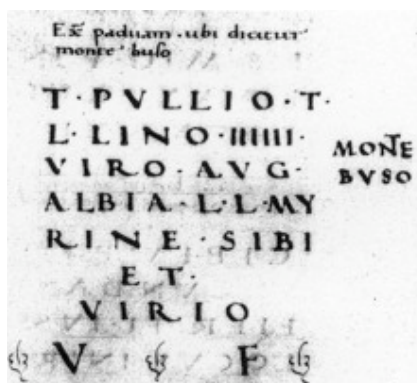 Exͣ paduam · ubi dicitur
monte · buso
T · PVLLIO · T ·
L · LINO · IIIIII ·
VIRO · AVG ·
ALBIA · L · L · MY
RINE · SIBI
ET ·
VIRIO
V F
MONTE
BVSO